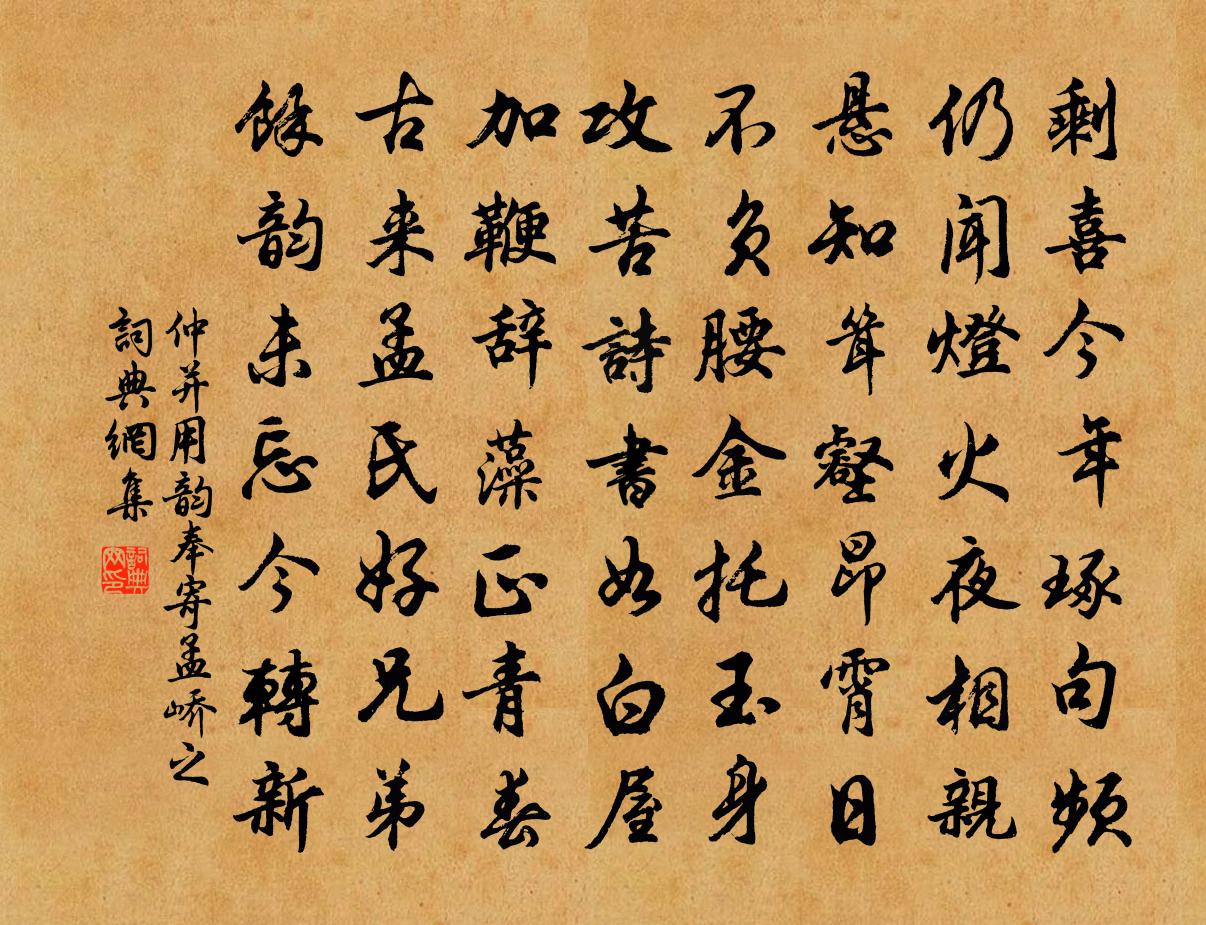 剩喜今年琢句頻
仍闻燈火夜相親
悬知耸壑昂霄日
不负腰金托玉身
攻苦詩書如白屋
加鞭辞藻正青春
古来孟氏好兄弟
餘韵未忘今轉新
仲并用韵奉寄孟峤之
詞典網集
詞典
网印